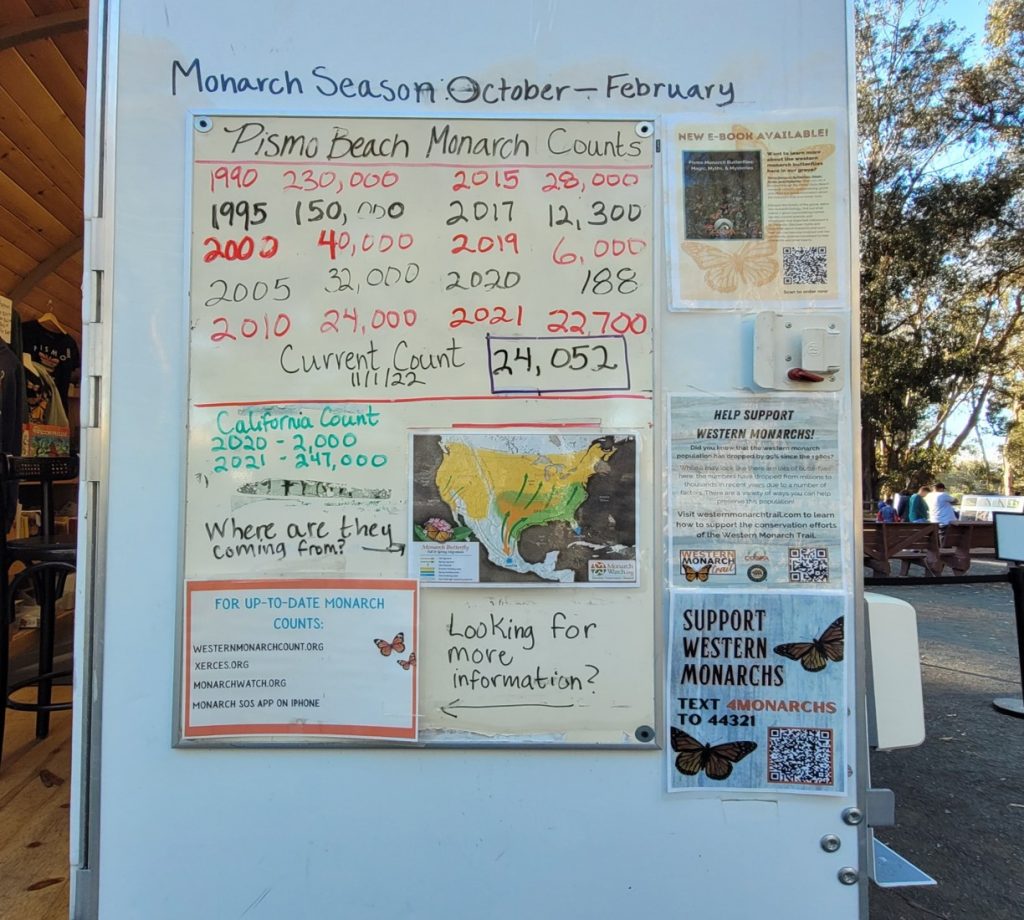 Monarch Season: October – February
Pismo Beach Monarch Counts
1990 230,000 2015 28,000
1995 150,000 2017 12,300
2000 40,000 2019 6,000
2005 32,000 2020 188
2010 24,000 2021 22,700
Current Count 24,052
11/1/22
California Count
2020 - 2,000
2021 - 247,000
Where are they
coming from?
Monarch Butterfly
Monarch Watch
FOR UP-TO-DATE MONARCH
COUNTS:
WESTERNMONARCHCOUNT.ORG
XERCES.ORG
MONARCHWATCH.ORG
MONARCH SOS APP ON IPHONE
Looking for
more
information?
NEW E-BOOK AVAILABLE!
Pismo Monarch Butterflies:
Magic, Myths, & Mysteries
Want to learn more
about the western
monarch butterflies
here in our grove?
Scan to order now
HELP SUPPORT
WESTERN MONARCHS!
Did you know that the western monarch
population has dropped by 99% since the 1980s?
While it may look like there are lots of butterflies
here, the numbers have dropped from millions to
thousands in recent years due to a number of
factors. There are a variety of ways you can help
preserve this population!
Visit westernmonarchtrail.com to learn
how to support the conservation efforts
of the Western Monarch Trail.
WESTERN
MONARCH
Trail
SUPPORT
WESTERN
MONARCHS
TEXT 4MONARCHS
TO 44321
PISMO